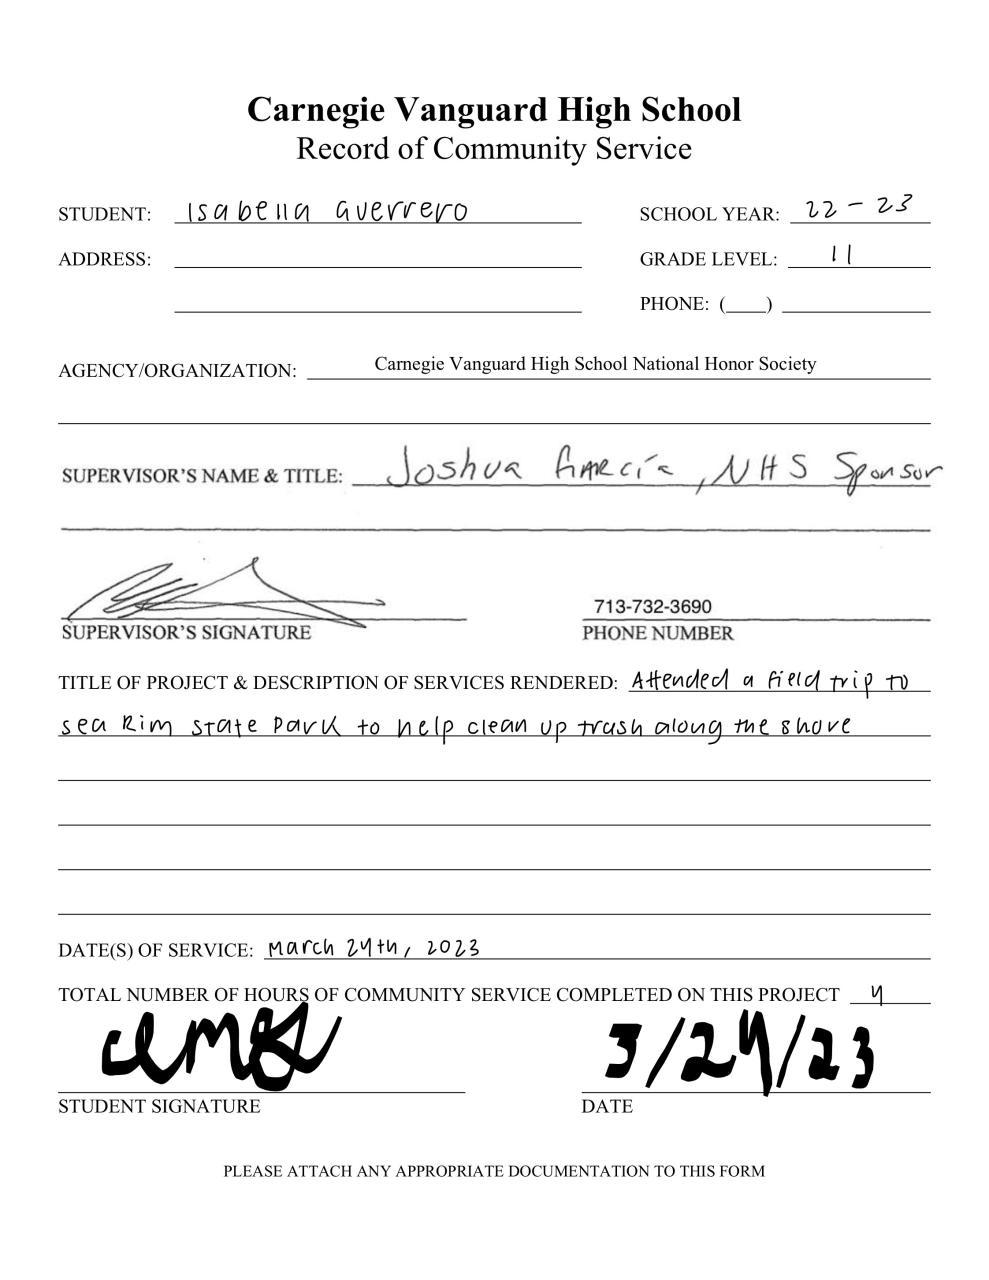 Carnegie Vanguard High School
Record of Community Service
STUDENT: Isabella Guerrero SCHOOL YEAR: 22-23
ADDRESS: GRADE LEVEL: 11
PHONE: (____)
AGENCY/ORGANIZATION: Carnegie Vanguard High School National Honor Society
SUPERVISOR'S NAME & TITLE: Joshua Garcia, NHS Sponsor
713-732-3690
SUPERVISOR'S SIGNATURE PHONE NUMBER
TITLE OF PROJECT & DESCRIPTION OF SERVICES RENDERED: Attended a field trip to
sea Rim State Park to help clean up trash along the shore
DATE(S) OF SERVICE: March 24th, 2023
TOTAL NUMBER OF HOURS OF COMMUNITY SERVICE COMPLETED ON THIS PROJECT 4
3/24/23
STUDENT SIGNATURE DATE
PLEASE ATTACH ANY APPROPRIATE DOCUMENTATION TO THIS FORM